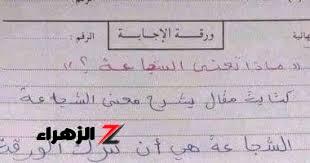 هائية
ورقة الإجابة
الرقم :
الرقم :
« ماذا تعنى الشجاعة ؟ »
كتابة مقال يشرح معنى الشجاعة
الزهراء
الشجاعة هي أن تترك الورقة